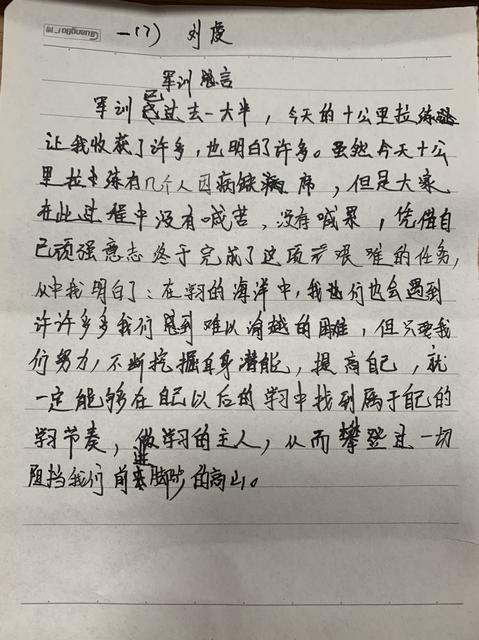 GuangBo广博
一(7) 刘虔
军训感言
军训已过去一大半，今天的十公里拉练
让我收获了许多，也明白了许多。虽然今天十公
里拉练有几个人因病缺席，但是大家
在此过程中没有喊苦，没有喊累，凭借自
己顽强意志终于完成了这项艰难的任务，
从中我明白了：在学习的海洋中，我们也会遇到
许许多多我们感到难以逾越的困难，但只要我
们努力，不断挖掘自身潜能，提高自己，就
一定能够在自己以后的学习中找到属于自己的
学习节奏，做学习的主人，从而攀登过一切
阻挡我们前进脚步的高山。